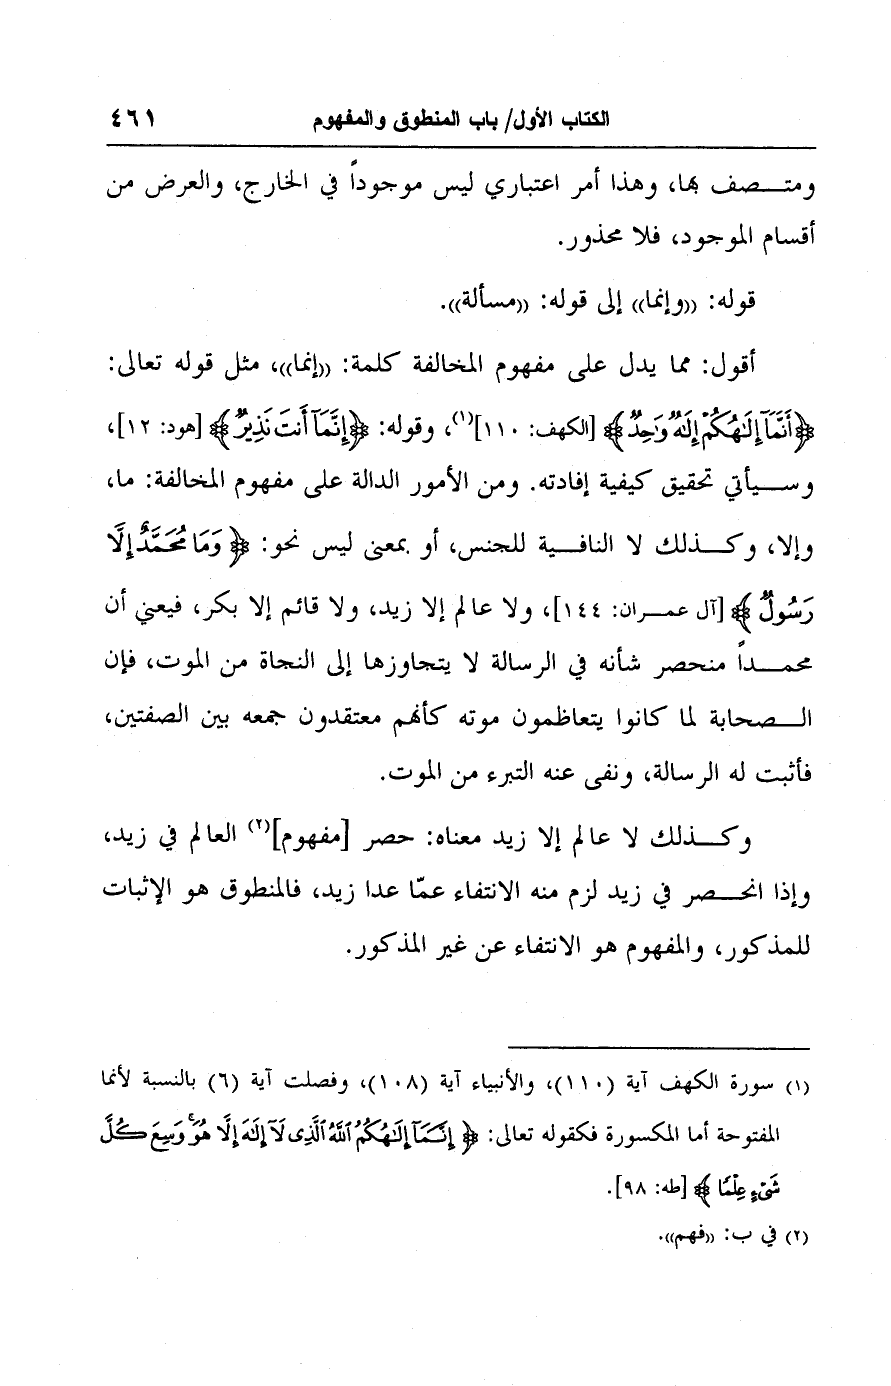 الكتاب الأول/ باب المنطوق والمفهوم ٤٦١
ومتـــصف بها، وهذا أمر اعتباري ليس موجوداً في الخارج، والعرض من
أقسام الموجود، فلا محذور.
قوله: ((وإنما)) إلى قوله: ((مسألة)).
أقول: مما يدل على مفهوم المخالفة كلمة: ((إنما))، مثل قوله تعالى:
﴿أَنَّمَآ إِلَـٰهُكُمْ إِلَـٰهٌ وَٰحِدٌ﴾ [الكهف: ١١٠](١)، وقوله: ﴿إِنَّمَآ أَنتَ نَذِيرٌ﴾ [هود: ١٢]،
وســـيأتي تحقيق كيفية إفادته. ومن الأمور الدالة على مفهوم المخالفة: ما،
وإلا، وكـــذلك لا النافـــية للجنس، أو بمعنى ليس نحو: ﴿وَمَا مُحَمَّدٌ إِلَّا
رَسُولٌ﴾ [آل عمـــران: ١٤٤]، ولا عالم إلا زيد، ولا قائم إلا بكر، فيعني أن
محمـــداً منحصر شأنه في الرسالة لا يتجاوزها إلى النجاة من الموت، فإن
الـــصحابة لما كانوا يتعاظمون موته كأنهم معتقدون جمعه بين الصفتين،
فأثبت له الرسالة، ونفى عنه التبرء من الموت.
وكـــذلك لا عالم إلا زيد معناه: حصر [مفهوم](٢) العالم في زيد،
وإذا انحـــصر في زيد لزم منه الانتفاء عمّا عدا زيد، فالمنطوق هو الإثبات
للمذكور، والمفهوم هو الانتفاء عن غير المذكور.
(١) سورة الكهف آية (١١٠)، والأنبياء آية (١٠٨)، وفصلت آية (٦) بالنسبة لأنما
المفتوحة أما المكسورة فكقوله تعالى: ﴿إِنَّمَآ إِلَـٰهُكُمُ ٱللَّهُ ٱلَّذِى لَآ إِلَـٰهَ إِلَّا هُوَ ۚ وَسِعَ كُلَّ
شَىْءٍ عِلْمًا﴾ [طه: ٩٨].
(٢) في ب: ((فهم)).